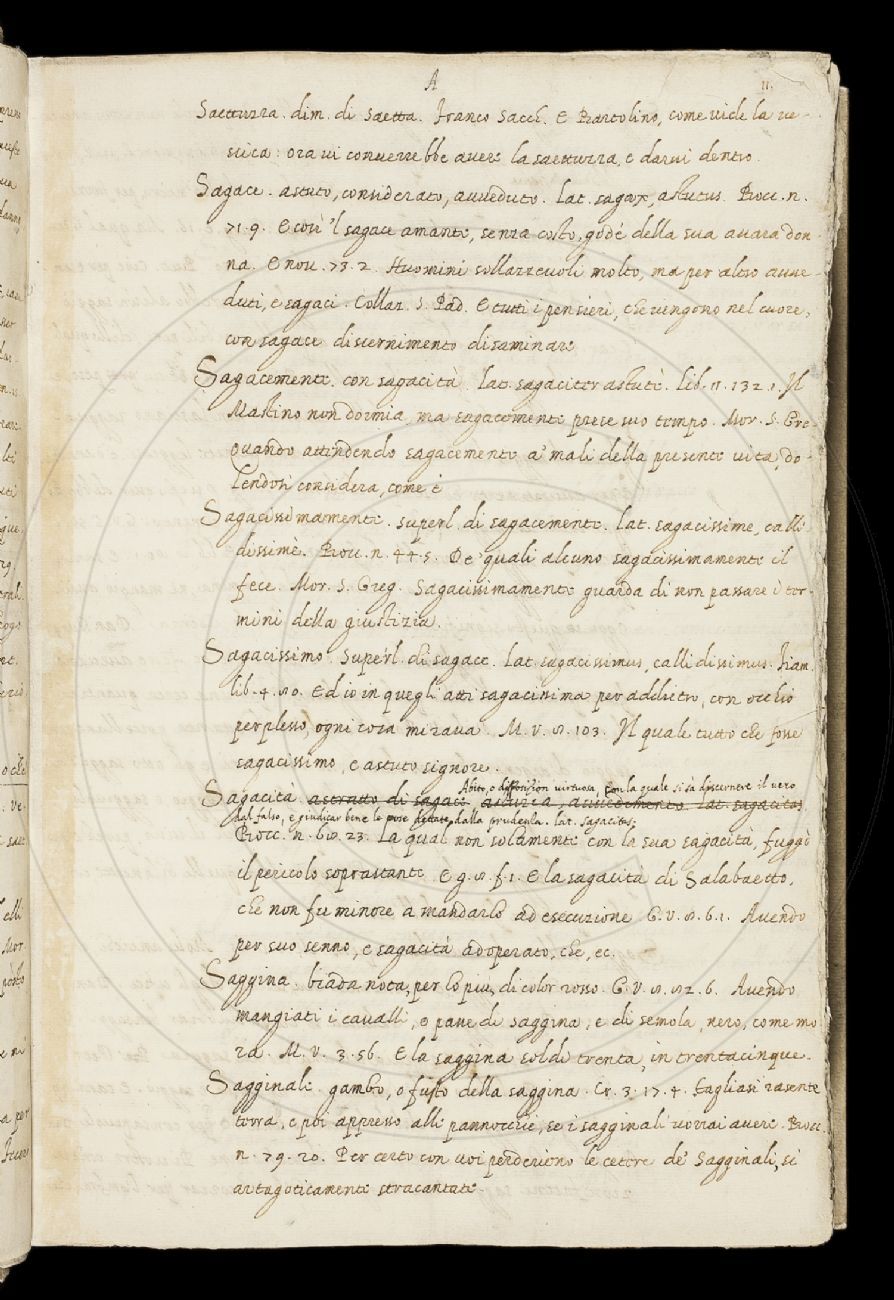 A
11
Saettuzza. dim. di Saetta. Franco Sacch. E Bartolino, come vide la ve-
scica: ora vi converrebbe avere la saettuzza, e darvi dentro.
Sagace. astuto, considerato, avveduto. Lat. sagax, astutus. Bocc. n.
71. 9. E così 'l sagace amante, senza costo, godè della sua avara don-
na. E nov. 73. 2. Huomini sollazzevoli molto, ma per altro avve-
duti, e sagaci. Collaz. S. Pad. E tutti i pensieri, che vengono nel cuore,
con sagace discernimento disaminare
Sagacemente. con sagacità. Lat. sagaciter astutè. lib. 11. 132. 1. Il
Mastino non dormia, ma sagacemente prese suo tempo. Mor. S. Gre.
quando attendendo sagacemente a' mali della presente vita, do-
lendosi considera, come è
Sagacissimamente. superl. di sagacemente. lat. sagacissime, calli-
dissimè. Bocc. n. 44. 5. De' quali alcuno sagacissimamente il
fece. Mor. S. Greg. Sagacissimamente guarda di non passare i ter-
mini della giustizia.
Sagacissimo. Superl. di sagace. Lat. sagacissimus, callidissimus. Fiam.
lib. 4. 80. Ed io in quegli atti sagacissima per addietro, con occhio
perplesso, ogni cosa mirava. M. V. 8. 103. Il quale tutto che fosse
sagacissimo, e astuto signore.
Abito, o disposizion virtuosa, con la quale si sà discernere il vero
Sagacità. astratto di sagace. astuzia, avvedimento. lat. sagacitas
dal falso, e giudicar bene le cose dettate dalla prudenza. lat. sagacitas.
Bocc. n. 68. 23. La qual non solamente con la sua sagacità, fuggì
il pericolo soprastante. E g. 8. f. 1. E la sagacità di Salabaetto,
che non fu minore a mandarlo ad esecuzione G. V. 8. 6. 1. Avendo
per suo senno, e sagacità adoperato, che, ec.
Saggina. biada nota, per lo più, di color rosso. G. V. 8. 82. 6. Avendo
mangiati i cavalli, e pane di saggina, e di semola, nero, come mo-
ra. M. V. 3. 56. E la saggina soldi trenta, in trentacinque.
Sagginale. gambo, o fusto della saggina. Cr. 3. 17. 4. Tagliasi rasente
terra, e poi appresso alle pannocchie, se i sagginali vorrai avere. Bocc.
n. 79. 20. Per certo con voi perderieno le cetere de' Sagginali, sì
artagoticamente stracantate.